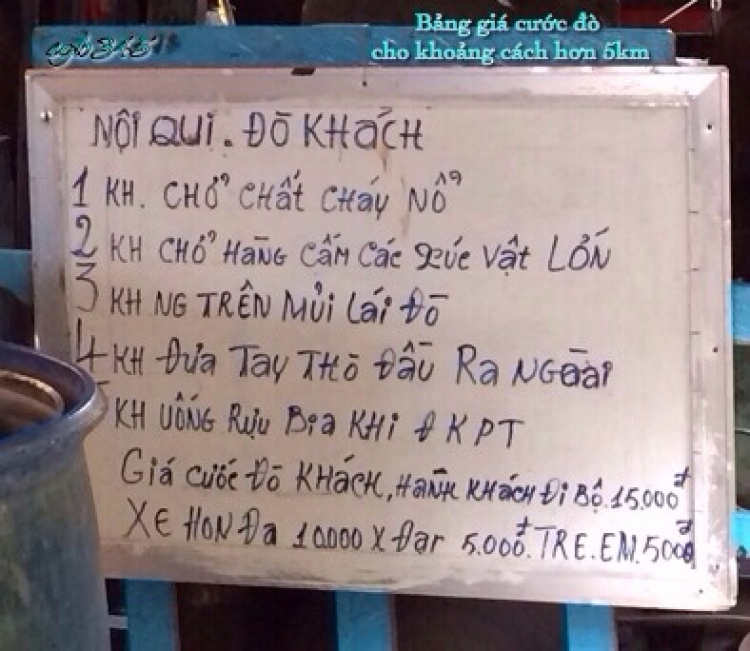 Bảng giá cước đò
cho khoảng cách hơn 5km
NỘI QUI. ĐÒ KHÁCH
1 KH. CHỞ CHẤT CHÁY NỔ
2 KH CHỞ HÀNG CẤM CÁC XÚC VẬT LỚN
3 KH NG TRÊN MŨI LÁI ĐÒ
4 KH ĐƯA TAY THÒ ĐẦU RA NGOÀI
5 KH UỐNG RựU BIA KHI Đ K P T
Giá cước ĐÒ KHÁCH, HÀNH KHÁCH ĐI BỘ. 15.000đ
XE HON ĐA 10.000 X ĐẠP 5.000đ. TRE. EM. 5000đ